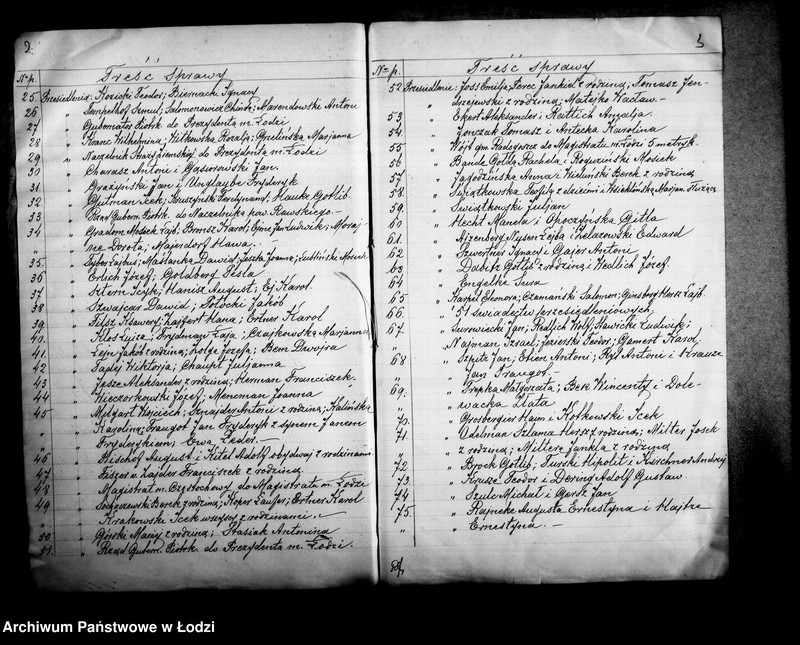 2.
Treść sprawy
Nr p.
25. Przesiedlenie: Kozicki Teodor; Biernacki Ignacy
26 " Tempelhof Szmul; Salomonowicz Chaim; Marendowski Antoni
27 " Gubernator Piotrk. do Prezydenta m. Łodzi
28 " Kranc Wilhelmina; Witkowska Rozalja; Marjanna
29 " Naczelnik Straży Ziemskiej do Prezydenta m. Łodzi
30 " Charasz Antoni i Gąsiorowski Jan.
31 " Grażyński Jan i Unglaube Fryderyk
32 " Gutman Icek; Ferdynand; Hauke Gotlib
33 " Rząd Gubern. Piotrk. do Naczelnika pow. Rawskiego.
34 " Mosiek Lajb; Karol; Ludwik; Moraj-
nce Dorota; Majerdorf Hawa. -
35. " Maślanka Dawid; Joanna; Lubliński Mosiek
36 " Erlich Józef; Goldberg Pesla
37 " Sztern Icyk; Hanisz August; Ej Karol.
38 " Szwajcar Dawid; Potocki Jakób
39 " Pilsz Ksawery; Zajfert Hana; Ertner Karol
40. " Klos Luiza; Frydman Łaja; Czajkowska Marjanna
41. " Jakób z rodziną; Józefa; Bem Dwojra
42 " Wiktorja; Chaupt Juljanna
43 " Jesze Aleksander z rodziną; Herman Franciszek.
44 " Wieczorkowski Józef; Meneman Joanna
45 " Melgart Wojciech; Sznajder Antoni z rodziną; Kalińska
" Karolina; Traugot Jan Fryderyk z synem Janem
" Fryderykiem; Ewa Leder. -
46 " Bischof August i Kitel Adolf obydwaj z rodzinami
47 " Fiszer v. Zajdler Franciszek z rodziną
48 " Magistrat m. Częstochowy do Magistratu m. Łodzi
49 " Sochaczewski Berek z rodziną; Koper Lauffer; Ertner Karol
" Krakowski Icek wszyscy z rodzinami. -
50 " Górski Maciej z rodziną; Stasiak Antonina
51. " Rząd Gubern. Piotrk. do Prezydenta m. Łodzi.
3
Treść sprawy
Nr p.
52 Przesiedlenie: Joss Emilja; Perec Jankiel z rodziną; Tomasz Jen-
" drzejewski z rodziną; Matejko Wacław. -
53 " Ekert Aleksander i Rattich Amalja.
54 " Jonczuk Tomasz i Antecka Karolina
55 " Wójt gm. Radogoszcz do Magistratu m. Łodzi 5 metryk.
56 " Bande Gotlib, Rachela i Roguziński Mosiek
57 " Jagodzińska Anna i Wieluński Berek z rodziną
58. " Świątkowska Teofila z dziećmi i Marjan.
59. " Świątkowski Juljan
60 " Hecht Manela i Opoczyńska Gitla
61. " Ajzenberg Nysen Lejba i Żelazowski Edward
62 " Szwertner Ignacy i Gajer Antoni
63 " Gotlib z rodziną i Wedlich Józef.
64 " Engelke Sura
65 " Karpel Eleonora; Czemański Salomon; Ginsberg Hersz Lajb.
66. " 51 świadectw przesiedleniowych.
67. " Surowiecki Jan; Redlich Wolf; Sawicki Ludwik;
" Najman Izrael; Jezierski Teodor; Gamert Karol
68 " Szpitz Jan; Antoni; Antoni i Krauze
" Jan Traugot. -
69. " Trepka Małgorzata; Bek Wincenty i Dole-
" wacka Złata
70. " Grosbergier Haim i Kotkowski Icek
71. " Udelman Szlama Hersz z rodziną; Miller Josek
" z rodziną; Millera Jankla z rodziną
72 " Brock Gotlib; Turski Hipolit i Kirchner Andrzej
73 " Kruze Teodor i Dering Adolf Gustaw.
74 " Szulc Michał i Gersz Jan
75 " Rajneke Augusta Ernestyna i Hajtze
" " Ernestyna. -
Archiwum Państwowe w Łodzi